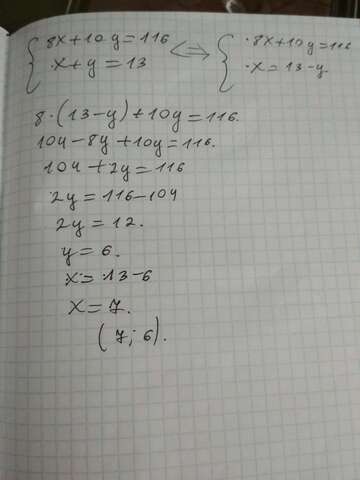 8x+10y=116 <=> 8x+10y=116
x+y=13 x=13-y
8·(13-y)+10y=116.
104-8y+10y=116.
104+2y=116
2y=116-104
2y=12.
y=6.
x=13-6
x=7.
(7; 6).